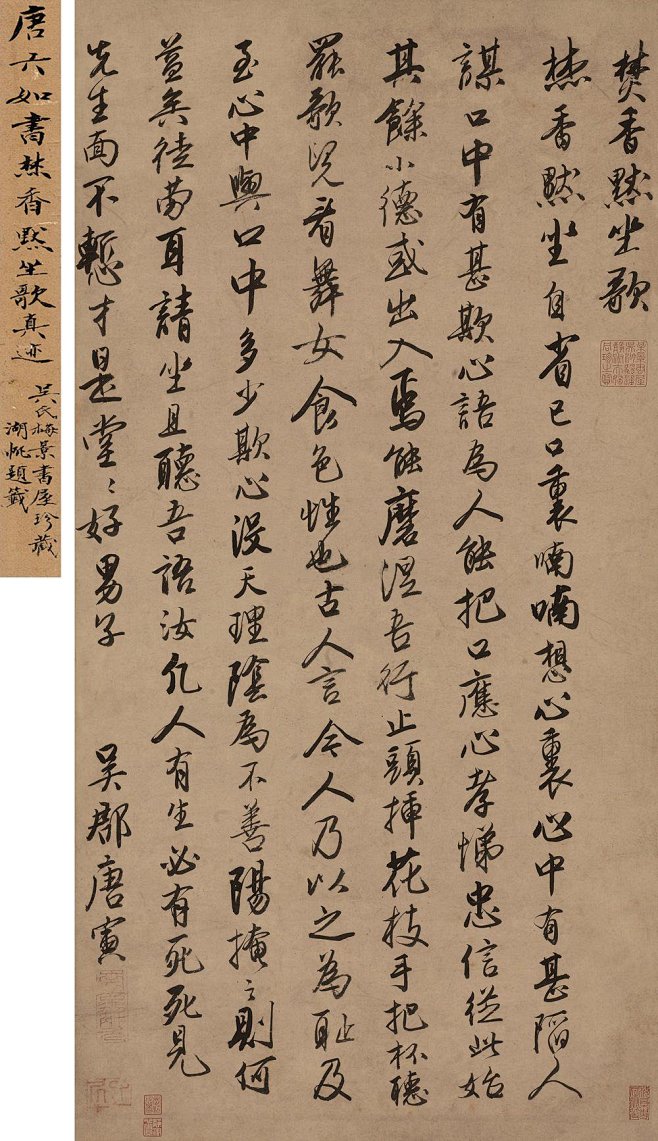 焚香黙坐歌
焚香黙坐自省己口裏喃喃想心裏心中有甚陷人
謀口中有甚欺心語為人能把口應心孝悌忠信從此始
其餘小德或出入焉能磨涅吾行止頭插花枝手把杯聽
罷歌兒看舞女食色性也古人言今人乃以之為耻及
至心中與口中多少欺心没天理陰為不善陽掩之則何
益矣徒勞耳請坐且聽吾語汝凡人有生必有死死見
先生面不慙才是堂〻好男子
吳郡唐寅
唐六如書焚香黙坐歌真迹
吳氏梅景書屋珍藏
湖帆題籤